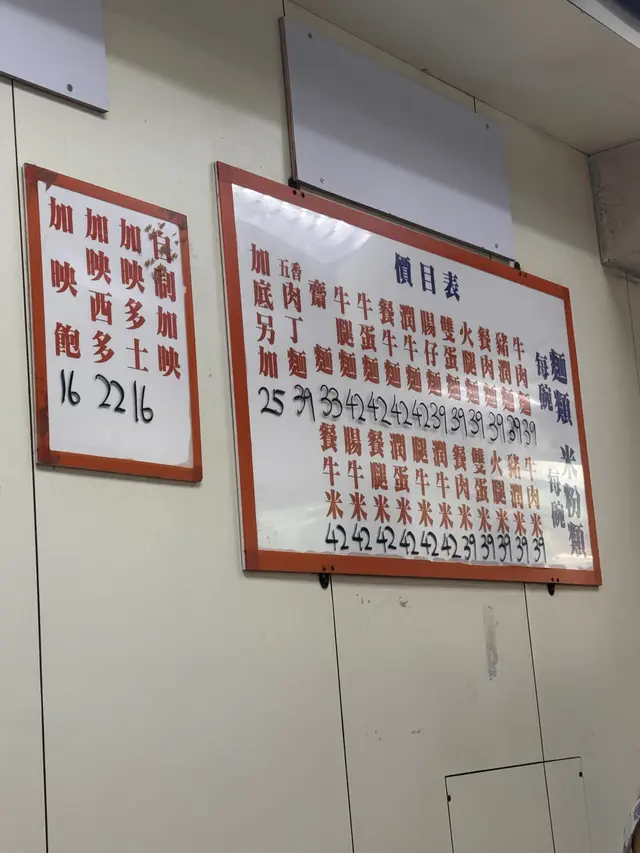 價目表
麵類
每碗
牛肉麵 39
豬潤麵 39
餐肉麵 39
火腿麵 39
雙蛋麵 39
腸仔麵 39
潤牛麵 42
餐牛麵 42
牛蛋麵 42
牛腿麵 42
齋麵 33
五香肉丁麵 39
加底另加 25
米粉類
每碗
牛肉米 39
豬潤米 39
火腿米 39
雙蛋米 39
餐肉米 39
潤牛米 42
腿牛米 42
潤蛋米 42
餐腿米 42
腸牛米 42
餐牛米 42
自制加映
加映多士 16
加映西多 22
加映飽 16